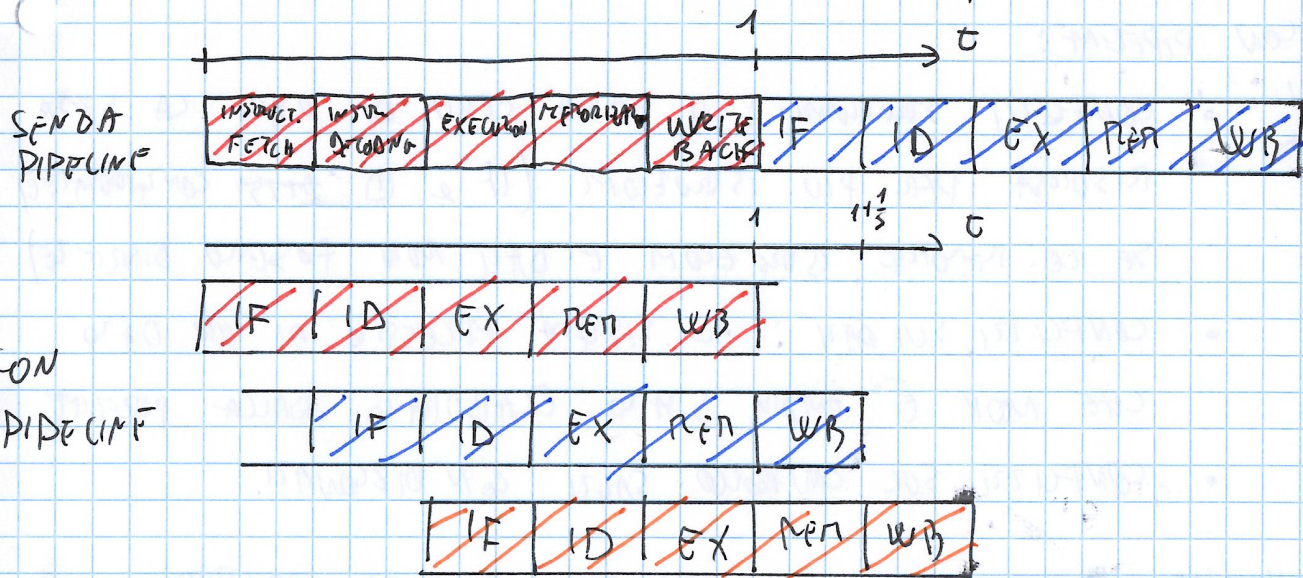 1 t
SENZA PIPELINE
INSTRUCT. FETCH
INSTR. DECODING
EXECUTION
MEMORIZZAZ.
WRITE BACK
IF ID EX MEM WB
1 1+1/5 t
IF ID EX MEM WB
CON PIPELINE
IF ID EX MEM WB
IF ID EX MEM WB